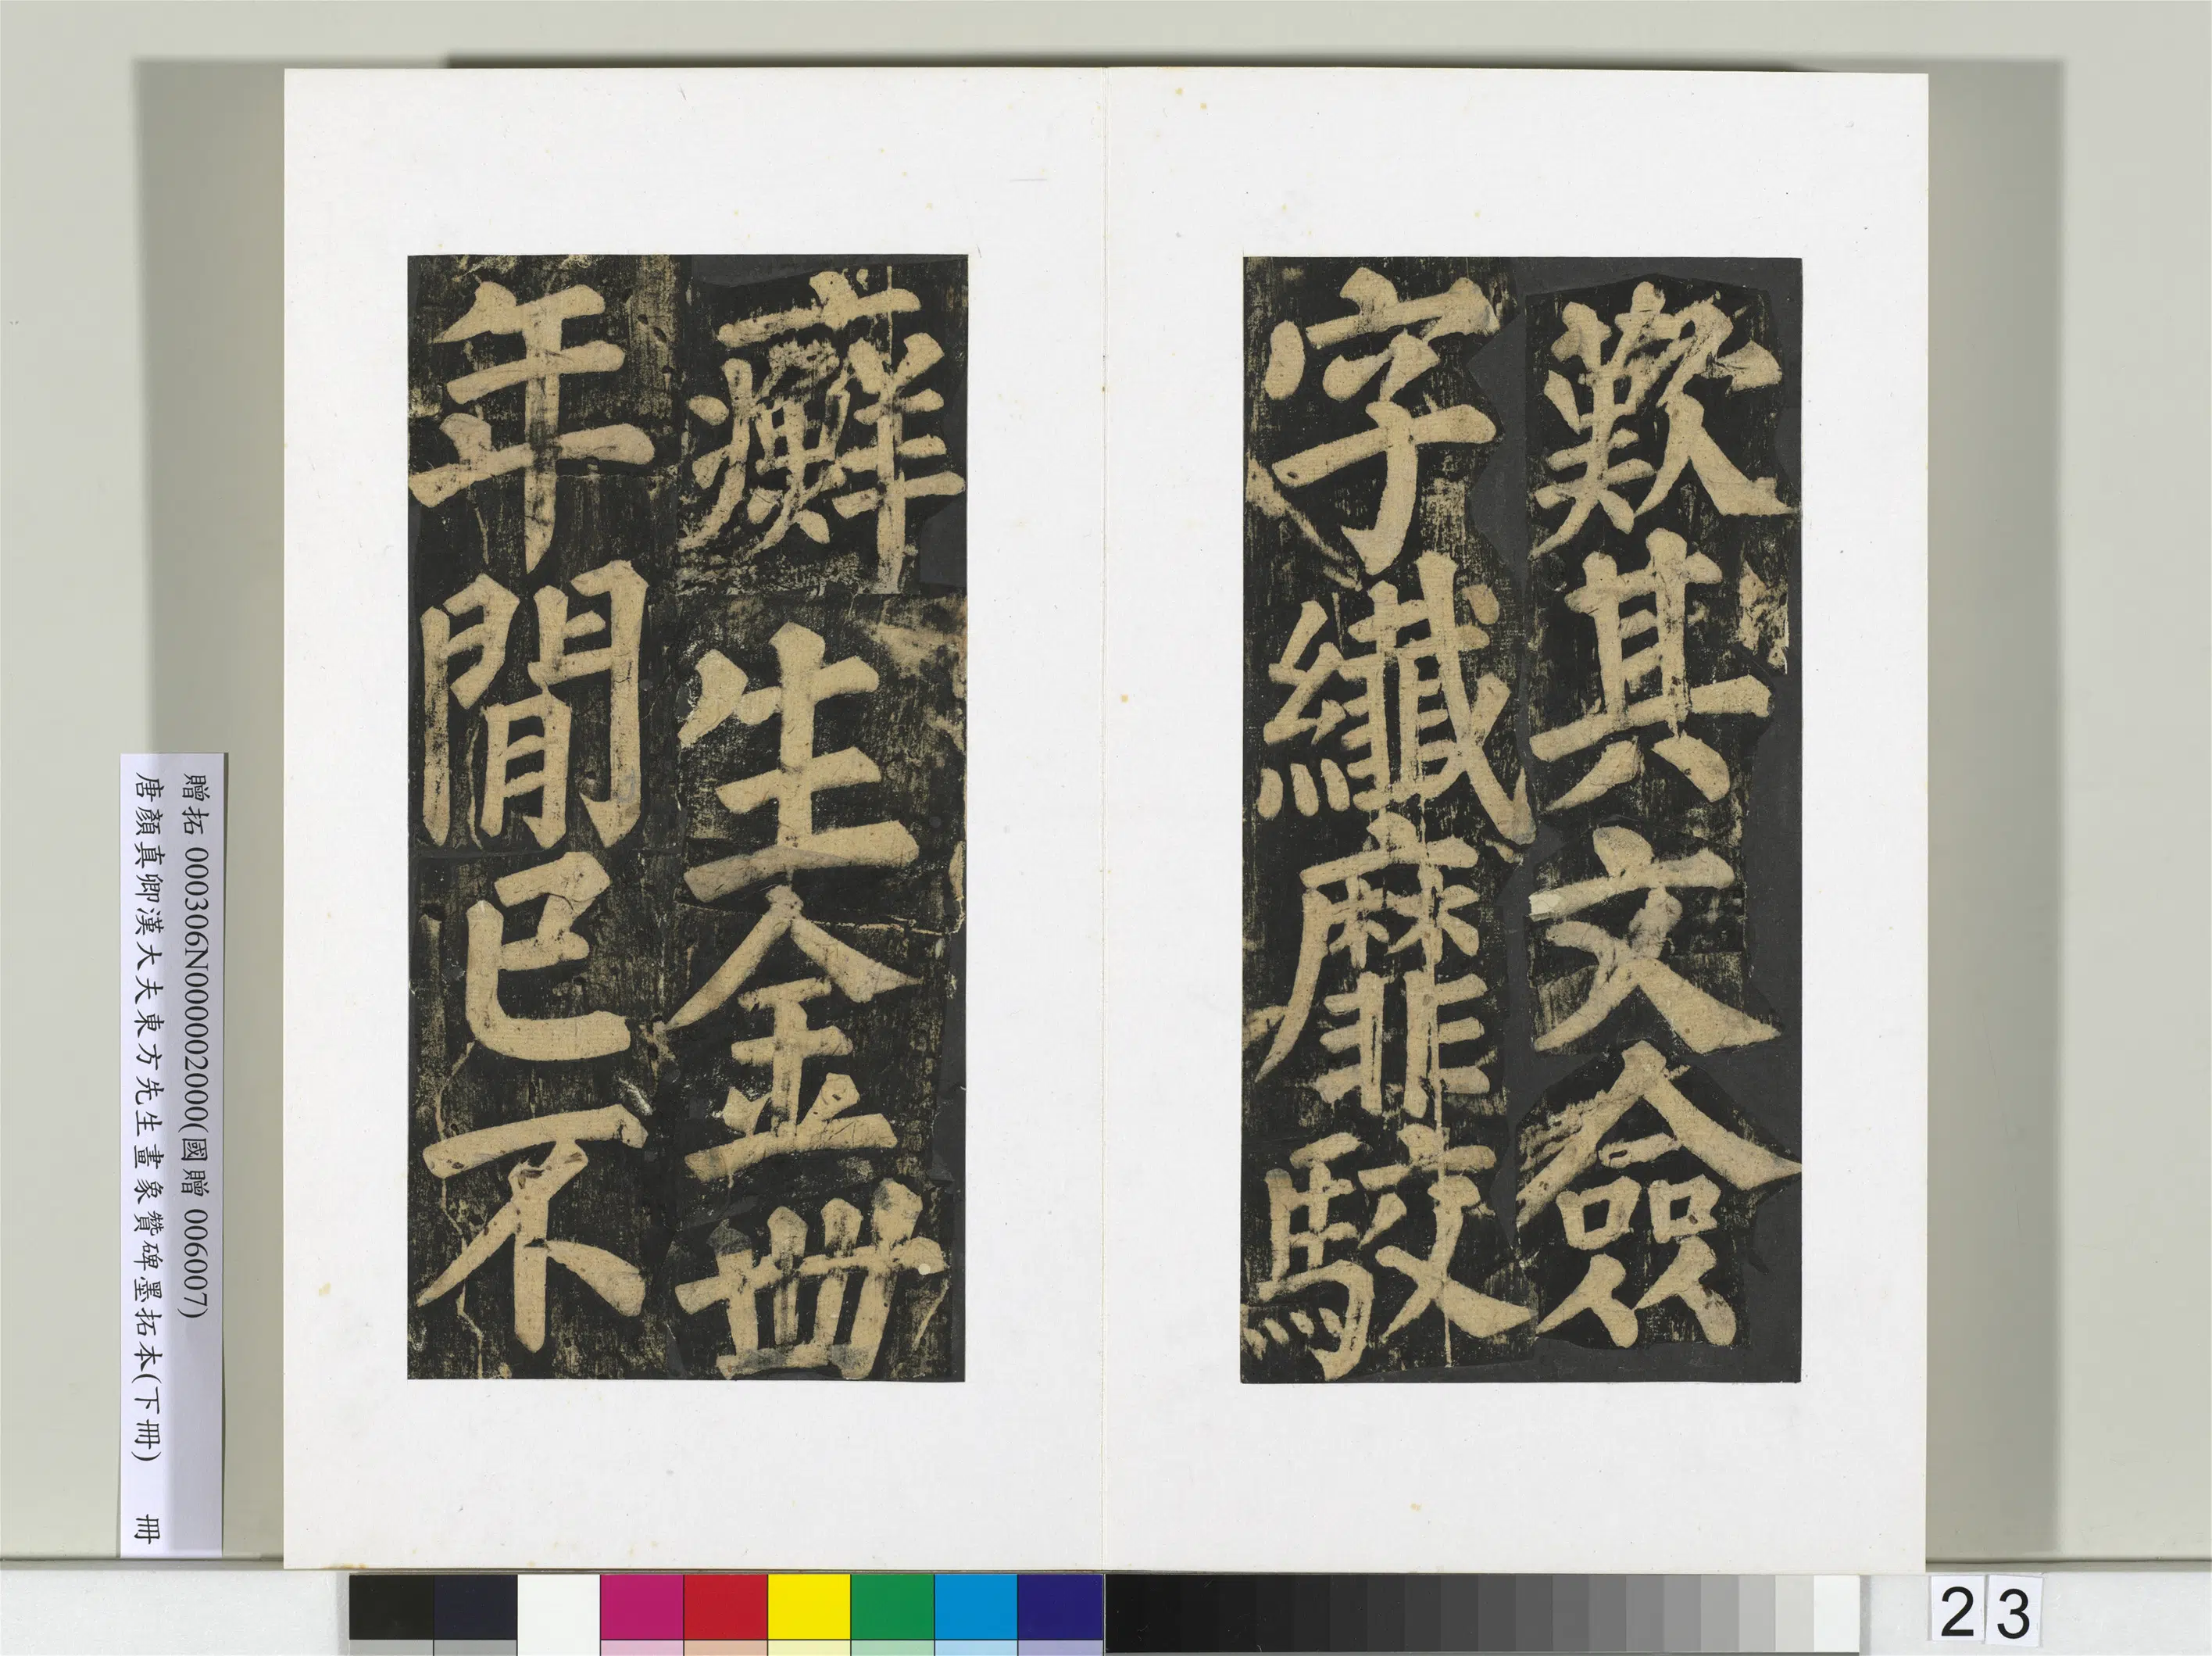 歎其文僉
字纖靡駮
癬生金卌
年閒已不
贈拓 000306N000002000(國贈 006007)
唐顏真卿漢大夫東方先生畫象贊碑墨拓本(下冊) 冊
23